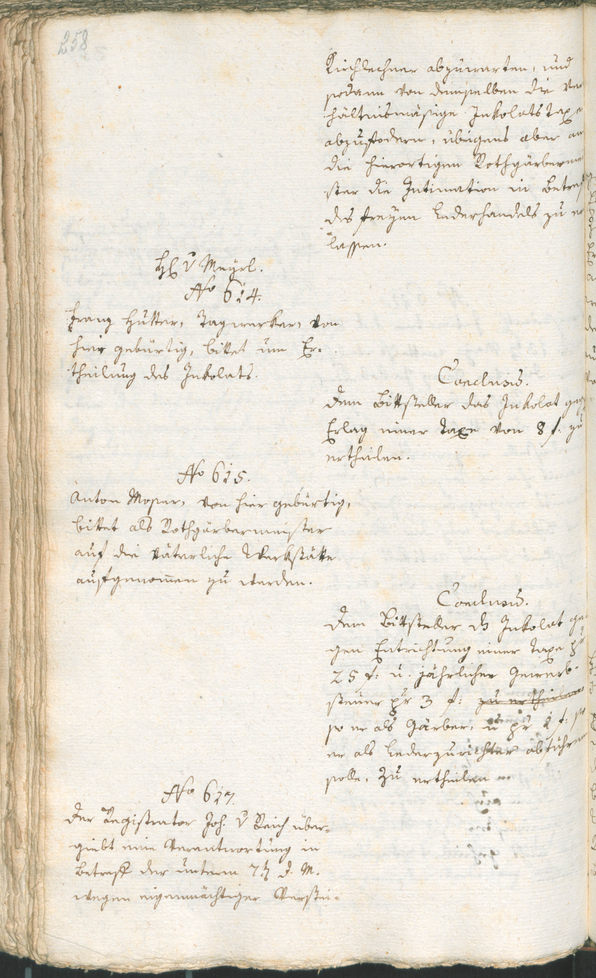 258
Kirchlechner abzuwarten, und
sodann von demselben die Ver
hältnismäsige Inkolats Taxe
abzufodern, übrigens aber an
die hierortigen Rothgärbermei
ster die Intimation in Betref
des freyen Lederhandels zu er
lassen.
H v Mayrl.
No 614.
Franz Hutter, Tagwerker, von
hier gebürtig, bittet um Er-
theilung des Inkolats.
Conclusus.
Dem Bittsteller das Inkolat gegen
Erlag einer Taxe von 8 f. zu
ertheilen.
No 615.
Anton Moser, von hier gebürtig,
bittet als Rothgärbermeister
auf die väterliche Werkstätte
aufgenommen zu werden.
Conclusus.
Dem Bittsteller ds Inkolat ge
gen Entrichtung einer Taxe pr
25 f. u. jährlicher Gewerb-
steuer pr 3 f. zu ertheilen
so er als Gärber, u pr 1 f. so
er als Lederzurichter abführen
solle, zu ertheilen
No 617.
Der Registrator Joh. v Reich über-
giebt eine Verantwortung in
Betreff der unterm 7t d. M.
wegen eigenmächtiger Verstei-